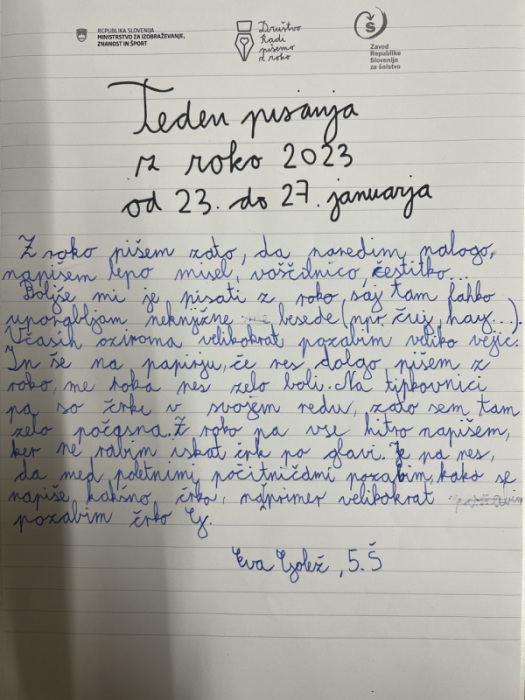 REPUBLIKA SLOVENIJA
MINISTRSTVO ZA IZOBRAŽEVANJE,
ZNANOST IN ŠPORT
Društvo
Radi
pišemo
z roko
Š
Zavod
Republike
Slovenije
za šolstvo
Teden pisanja
z roko 2023
od 23. do 27. januarja
Z roko pišem zato, da naredim nalogo,
napišem lepo misel, voščilnico, čestitko...
Boljše mi je pisati z roko, saj tam lahko
uporabljam neknjižne besede (npr. čuj, nay...).
Včasih oziroma velikokrat pozabim veliko vejic.
In še na papirju, če res dolgo pišem z
roko, me roka res zelo boli. Na tipkovnici
pa so črke v svojem redu, zato sem tam
zelo počasna. Z roko pa vse hitro napišem,
ker ne rabim iskat črk po glavi. Je pa res,
da med poletnimi počitnicami pozabim, kako se
napiše kakšno črko, naprimer velikokrat
pozabim črko G.
Eva Golež, 5. Š